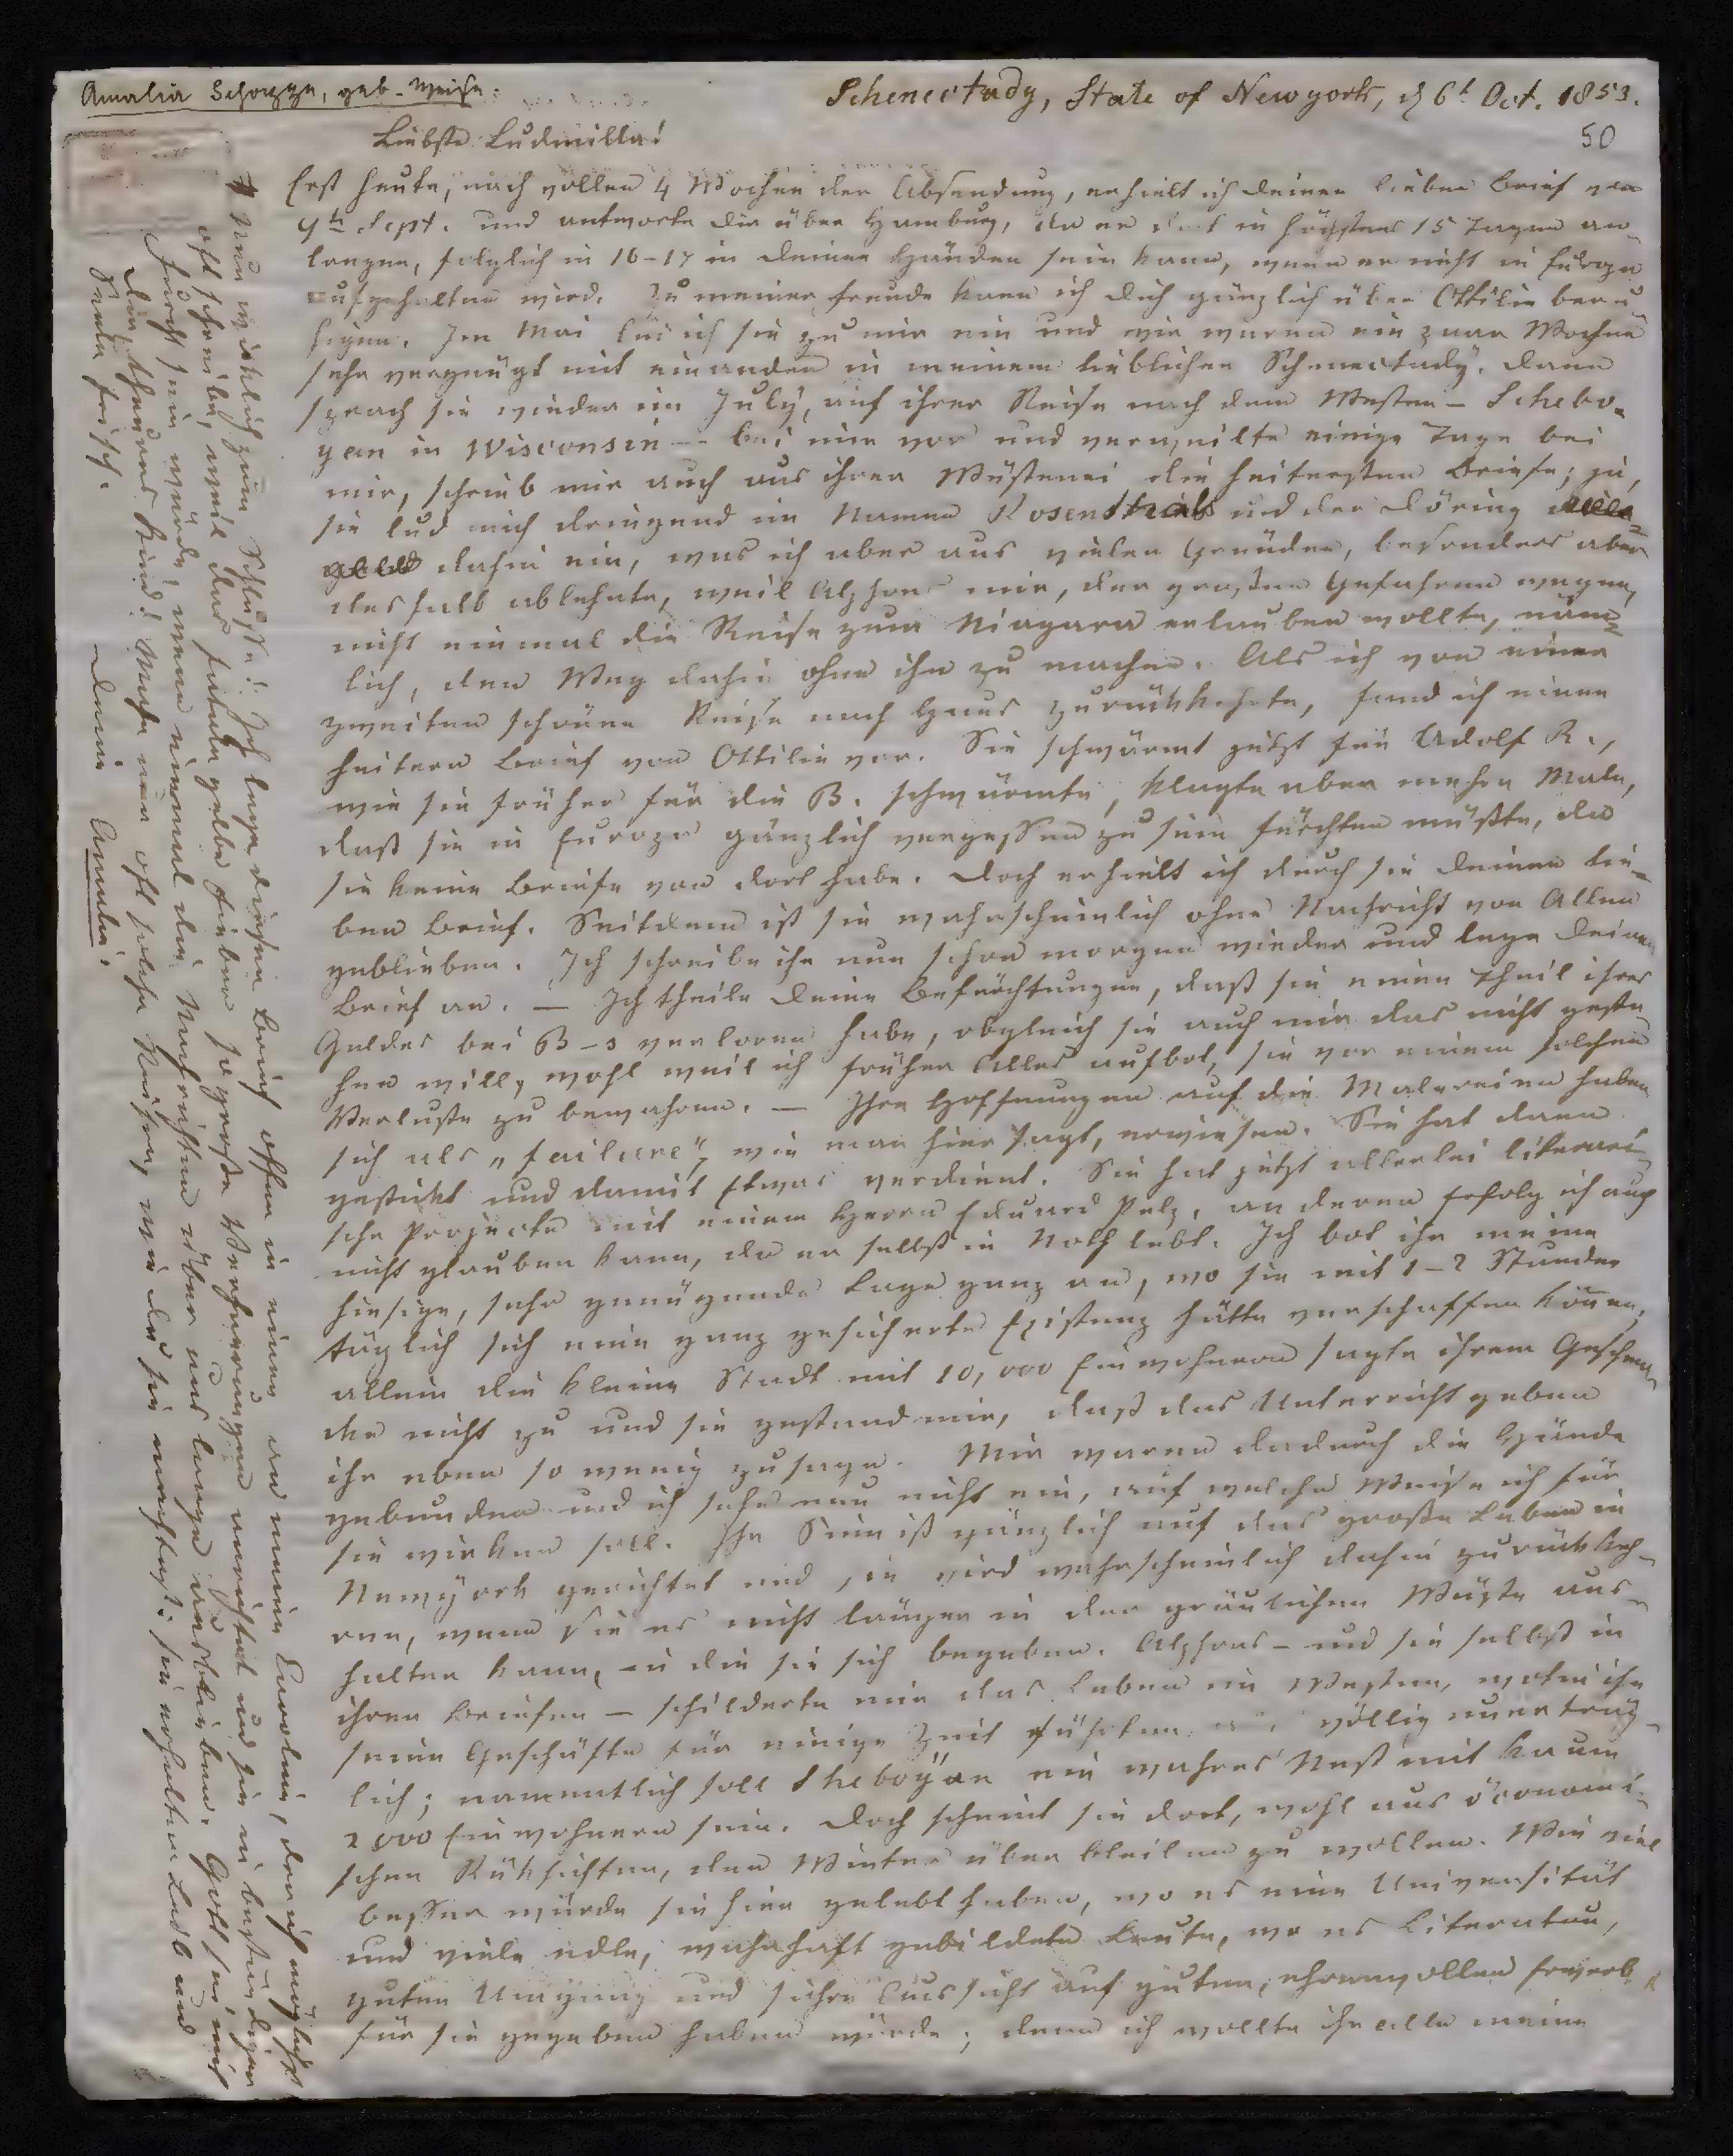 Amalia Schoppe, geb. Weise.
Schenectady, State of Newyork, d 6t Oct. 1853.
50
Liebste Ludmilla!
Erst heute, nach vollen 4 Wochen der Absendung, erhielt ich deinen lieben Brief vom
9th Sept. und antworte dir über Hamburg, da er dort in höchstens 15 Tagen an-
langen, folglich in 16-17 in deinen Händen sein kann, wenn er nicht in Europa
aufgehalten wird. Zu meiner Freude kann ich dich gänzlich über Ottilie beru
higen. Im Mai lud ich sie zu mir ein und wir waren ein paar Wochen
sehr vergnügt mit einander in meinem lieblichen Schenectady. dann
sprach sie wieder im July, auf ihrer Reise nach dem Westen – Schebo-
gan in Wisconsin – bei mir vor und verweilte einige Tage bei
mir, schrieb mir auch aus ihrer Wüstenei die heitersten Briefe; ja,
sie lud mich dringend im Namen Rosenthals und der Döring
dahin ein, was ich aber aus vielen Gründen, besonders aber
deshalb ablehnte, weil Alphons mir, der großen Gefahren wegen,
nicht einmal die Reise zum Niagara erlauben wollte, näm-
lich, den Weg dahin ohne ihn zu machen. Als ich von einer
zweiten schönen Reise nach Haus zurückkehrte, fand ich einen
heitern Brief von Ottilie vor. Sie schwärmt jetzt für Adolf R.,
wie sie früher für die B. schwärmte, klagte aber mehre Male,
daß sie in Europa gänzlich vergessen zu sein fürchten müßte, da
sie keine Briefe von dort habe. Doch erhielt ich durch sie deinen lie-
ben Brief. Seitdem ist sie wahrscheinlich ohne Nachricht von Allen
geblieben. Ich schreibe ihr nun schon morgen wieder und lege deinen
Brief an. – Ich theile deine Befürchtungen, daß sie einen Theil ihres
Geldes bei B-s verloren habe, obgleich sie auch mir das nicht geste-
hen will, wohl weil ich früher Alles aufbot, sie vor einem solchen
Verluste zu bewahren. – Ihre Hoffnungen auf die Malereien haben
sich als „failure", wie man hier sagt, erwiesen. Sie hat dann
gestickt und damit Etwas verdient. Sie hat jetzt allerlei literari-
sche Projecte mit einem Herrn Eduard Pelz, an deren Erfolg ich auch
nicht glauben kann, da er selbst in Noth lebt. Ich bot ihr meine
hiesige, sehr genügende Lage ganz an, wo sie mit 1-2 Stunden
täglich sich eine ganz gesicherte Existenz hätte verschaffen können,
allein die kleine Stadt mit 10,000 Einwohnern sagte ihrem Geschma-
cke nicht zu und sie gestand mir, daß das Unterricht geben
ihr eben so wenig zusage. Mir waren dadurch die Hände
gebunden und ich sehe nun nicht ein, auf welche Weise ich für
sie wirken soll. Ihr Sinn ist gänzlich auf das große Leben in
Newyork gerichtet und sie wird wahrscheinlich dahin zurückkeh-
ren, wenn sie es nicht länger in der gräulichen Wüste aus-
halten kann, in die sie sich begeben. Alphons – und sie selbst in
ihren Briefen – schilderte mir das Leben im Westen, wohin ihn
seine Geschäfte für einige Zeit führten, als völlig unerträg-
lich; namentlich soll Sheboygan ein wahres Nest mit kaum
2000 Einwohnern sein. Doch scheint sie dort, wohl aus öconomi-
schen Rüksichten, den Winter über bleiben zu wollen. Wie viel
besser würde sie hier gelebt haben, wo es eine Universität
und viele edle, wahrhaft gebildete Leute, wo es Literatur,
guten Umgang und sichere Aussicht auf guten, ehrenvollen Erwerb
für sie gegeben haben würde; denn ich wollte ihr alle meine
Nun wirklich zum Schlusse! Ich lege diesen Brief offen in einen an meine Caroline, der ich möglichst
oft schreibe, weil das fatale gelbe Fieber so große Verheerungen anrichtet und sie in beständiger
Furcht sein würde, wenn einmal die Nachrichten über uns lange ausblieben. Gott sei mit
dir, theures Kind! Mache nur oft solche Reisen, wie du sie machtest: sie erhalten Leib und
Seele frisch.
Deine Amalia.